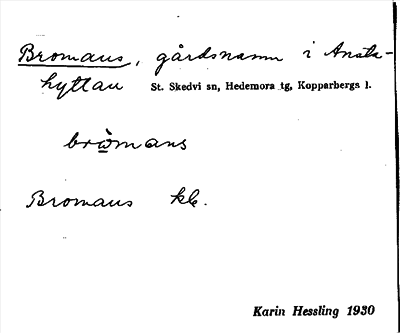 Bromans, gårdsnamn i Ansta-
hyttan St. Skedvi sn, Hedemora tg, Kopparbergs l.
bròmans
Bromans kb.
Karin Hessling 1930